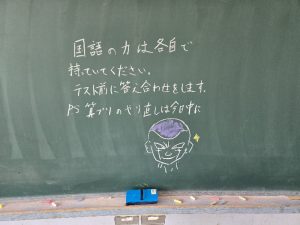 国語の力は各自で
持っていてください。
テスト前に答え合わせをします。
PS 算プリのやり直しは今日中に